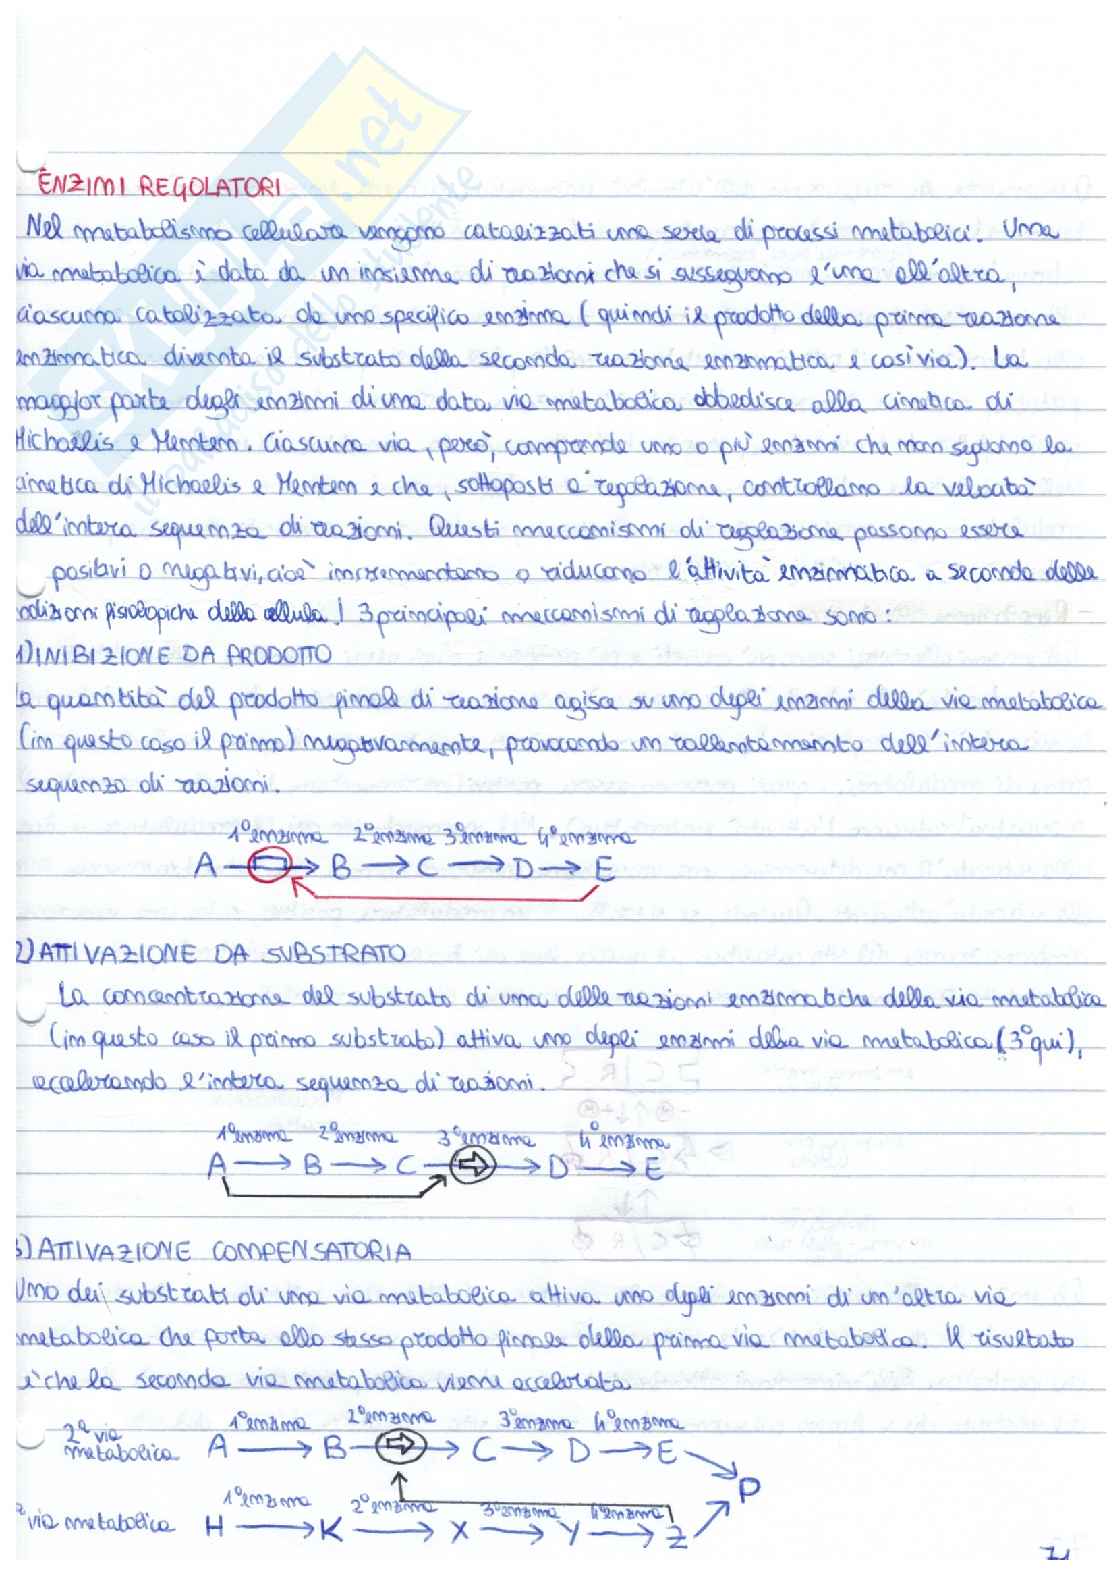 ENZIMI REGOLATORI
Nel metabolismo cellulare vengono catalizzati una serie di processi metabolici. Una
via metabolica è data da un insieme di reazioni che si susseguono l'una all'altra,
ciascuna catalizzata da uno specifico enzima (quindi il prodotto della prima reazione
enzimatica diventa il substrato della seconda reazione enzimatica e così via). La
maggior parte degli enzimi di una data via metabolica obbedisce alla cinetica di
Michaelis e Menten. Ciascuna via, però, comprende uno o più enzimi che non seguono la
cinetica di Michaelis e Menten e che, sottoposti a regolazione, controllano la velocità
dell'intera sequenza di reazioni. Questi meccanismi di regolazione possono essere
positivi o negativi, cioè incrementano o riducono l'attività enzimatica a seconda delle
ndizioni fisiologiche della cellula. I 3 principali meccanismi di regolazione sono:
1) INIBIZIONE DA PRODOTTO
La quantità del prodotto finale di reazione agisce su uno degli enzimi della via metabolica
(in questo caso il primo) negativamente, provocando un rallentamento dell'intera
sequenza di reazioni.
1° enzima 2° enzima 3° enzima 4° enzima
A → B → C → D → E
2) ATTIVAZIONE DA SUBSTRATO
La concentrazione del substrato di una delle reazioni enzimatiche della via metabolica
(in questo caso il primo substrato) attiva uno degli enzimi della via metabolica (3° qui),
accelerando l'intera sequenza di reazioni.
1° enzima 2° enzima 3° enzima 4° enzima
A → B → C → D → E
3) ATTIVAZIONE COMPENSATORIA
Uno dei substrati di una via metabolica attiva uno degli enzimi di un'altra via
metabolica che porta allo stesso prodotto finale della prima via metabolica. Il risultato
è che la seconda via metabolica viene accelerata
1° enzima 2° enzima 3° enzima 4° enzima
2ª via metabolica A → B → C → D → E
P
1° enzima 2° enzima 3° enzima 4° enzima
via metabolica H → K → X → Y → Z
SKUOLA.net
il paradiso dello studente